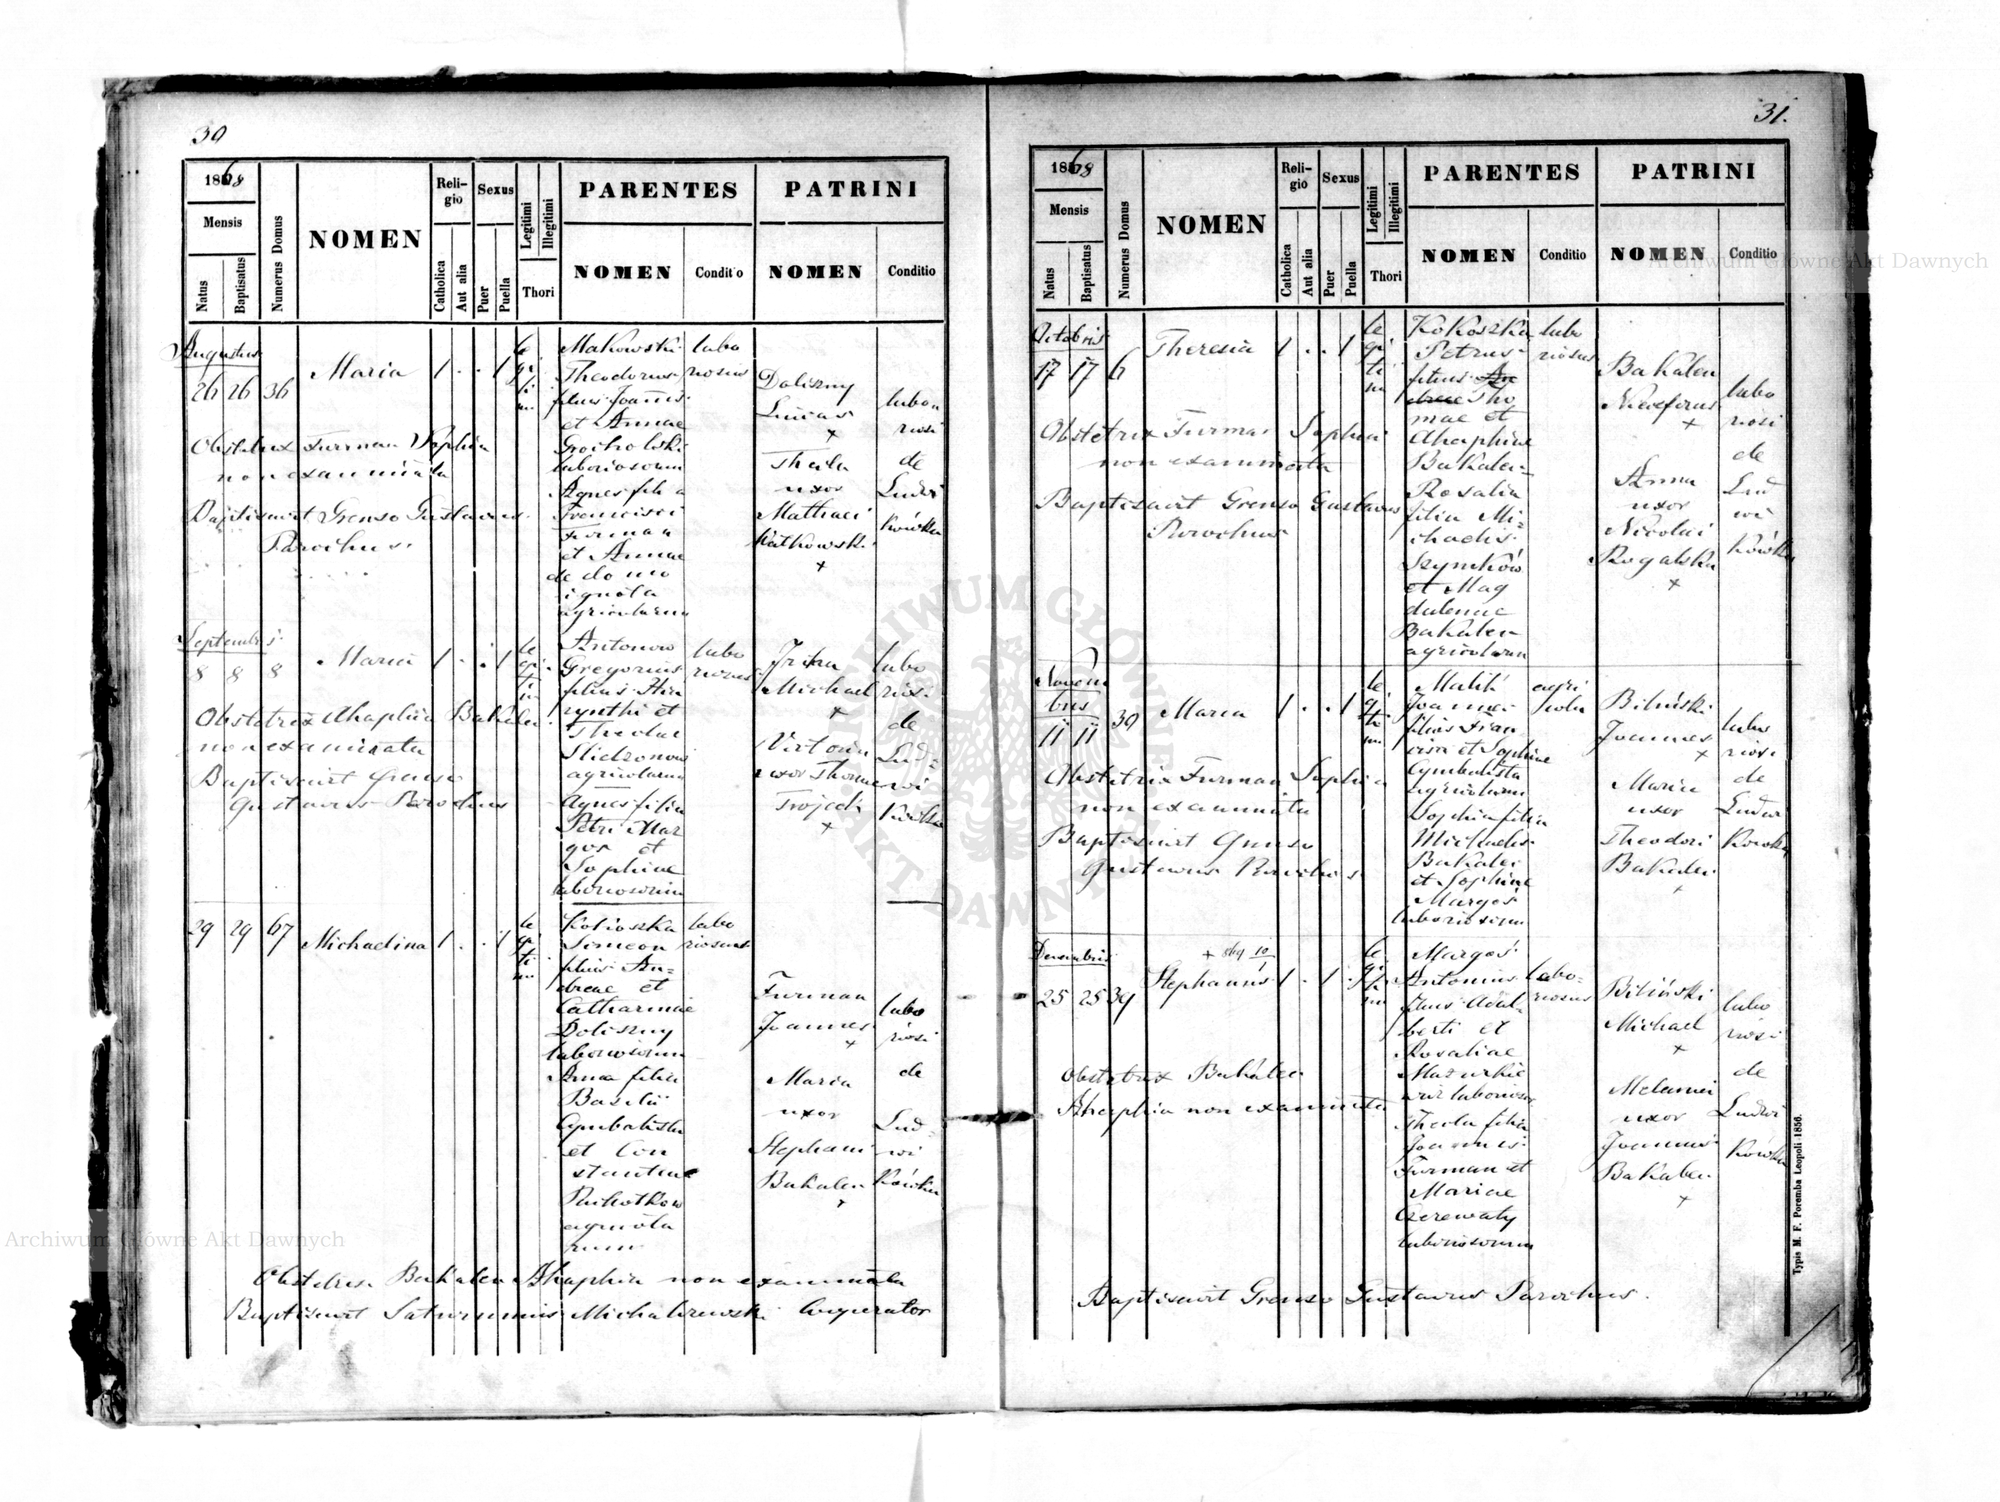 30
1868
Mensis
Natus
Baptisatus
Numerus Domus
NOMEN
Religio
Catholica
Aut alia
Sexus
Puer
Puella
Legitimi
Illegitimi
Thori
PARENTES
NOMEN
Conditio
PATRINI
NOMEN
Conditio
Augustus
26 26 36
Maria
1 . . 1
le
gi
ti
mi
Makowski
Theodorus
filius Joannis
et Annae
laboriosorum
Agnes filia
Francisci
Furman
et Annae
de domo
ignota
agricolarum
labo
riosus
Doliszny
Lucas
+
Thecla
uxor
Mathaei
+
labo
riosi
de
Ludwi
kówka
Obstetrix Furman Sophia
non examinata
Baptisavit Grenso Gustavus
Parochus
Septembris
8 8 8
Maria
1 . . 1
le
gi
ti
mi
Antonow
Gregorius
filius Hia
cynthi et
Theclae
agricolarum
Agnes filia
Petri Mar
gos et
Sophiae
laboriosorum
labo
riosus
Michael
+
uxor Thomae
+
labo
riosi
de
Lud-
wi
kówka
Obstetrix Ahaphia Bakalec
non examinata
Baptisavit Grenso
Gustavus Parochus
29 29 67
Michaelina
1 . . 1
le
gi
ti
mi
Simeon
filius An-
dreae et
Catharinae
Doliszny
laboriosorum
Anna filia
Basilii
Cymbalista
et Con
stantiae
agricola
rum
labo
riosus
Furman
Joannes
+
Maria
uxor
Stephani
Bakalec
+
labo
riosi
de
Lud-
wi
kówka
Obstetrix Bakalec Ahaphia non examinata
Baptisavit Saturninus Michalczewski Cooperator
31.
1868
Mensis
Natus
Baptisatus
Numerus Domus
NOMEN
Religio
Catholica
Aut alia
Sexus
Puer
Puella
Legitimi
Illegitimi
Thori
PARENTES
NOMEN
Conditio
PATRINI
NOMEN
Conditio
Octobris
17 17 6
Theresia
1 . . 1
le
gi
ti
mi
Kokoszka
Petrus
filius An
dreae Tho
mae et
Ahaphiae
Bakalec
Rosalia
filia Mi-
chaelis
Szymków
et Mag
dalenae
Bakalec
agricolarum
labo
riosus
Bakalec
Niceforus
+
Anna
uxor
Nicolai
Rogalska
+
labo
riosi
de
Lud
wi
kówka
Obstetrix Furman Sophia
non examinata
Baptisavit Grenso Gustavus
Parochus
Novem
bris
11 11 39
Maria
1 . . 1
le
gi
ti
mi
Malik
Joannes
filius Fran
cisci et Sophiae
Cymbalista
agricolarum
Sophia filia
Michaelis
Bakalec
et Sophiae
Margos
laboriosorum
agri
cola
Biliński
Joannes
+
Maria
uxor
Theodori
Bakalec
+
labo
riosi
de
Ludwi
kówka
Obstetrix Furman Sophia
non examinata
Baptisavit Grenso
Gustavus Parochus
Decembris
25 25 39
+ 869 10/1
Stephanus
1 . 1 .
le
gi
ti
mi
Margos
Antonius
filius Adal-
berti et
Rosaliae
Mazurkie
wicz laborioso
Thecla filia
Joannis
Furman et
Mariae
Czerewaty
laboriosorum
labo-
riosus
Biliński
Michael
+
uxor
Joannis
Bakalec
+
labo
riosi
de
Ludwi
kówka
Obstetrix Bakalec
Ahaphia non examinata
Baptisavit Grenso Gustavus Parochus.
Typis M. F. Poremba Leopoli 1856.
Archiwum Główne Akt Dawnych
Archiwum Główne Akt Dawnych
ARCHIWUM GŁÓWNE AKT DAWNYCH